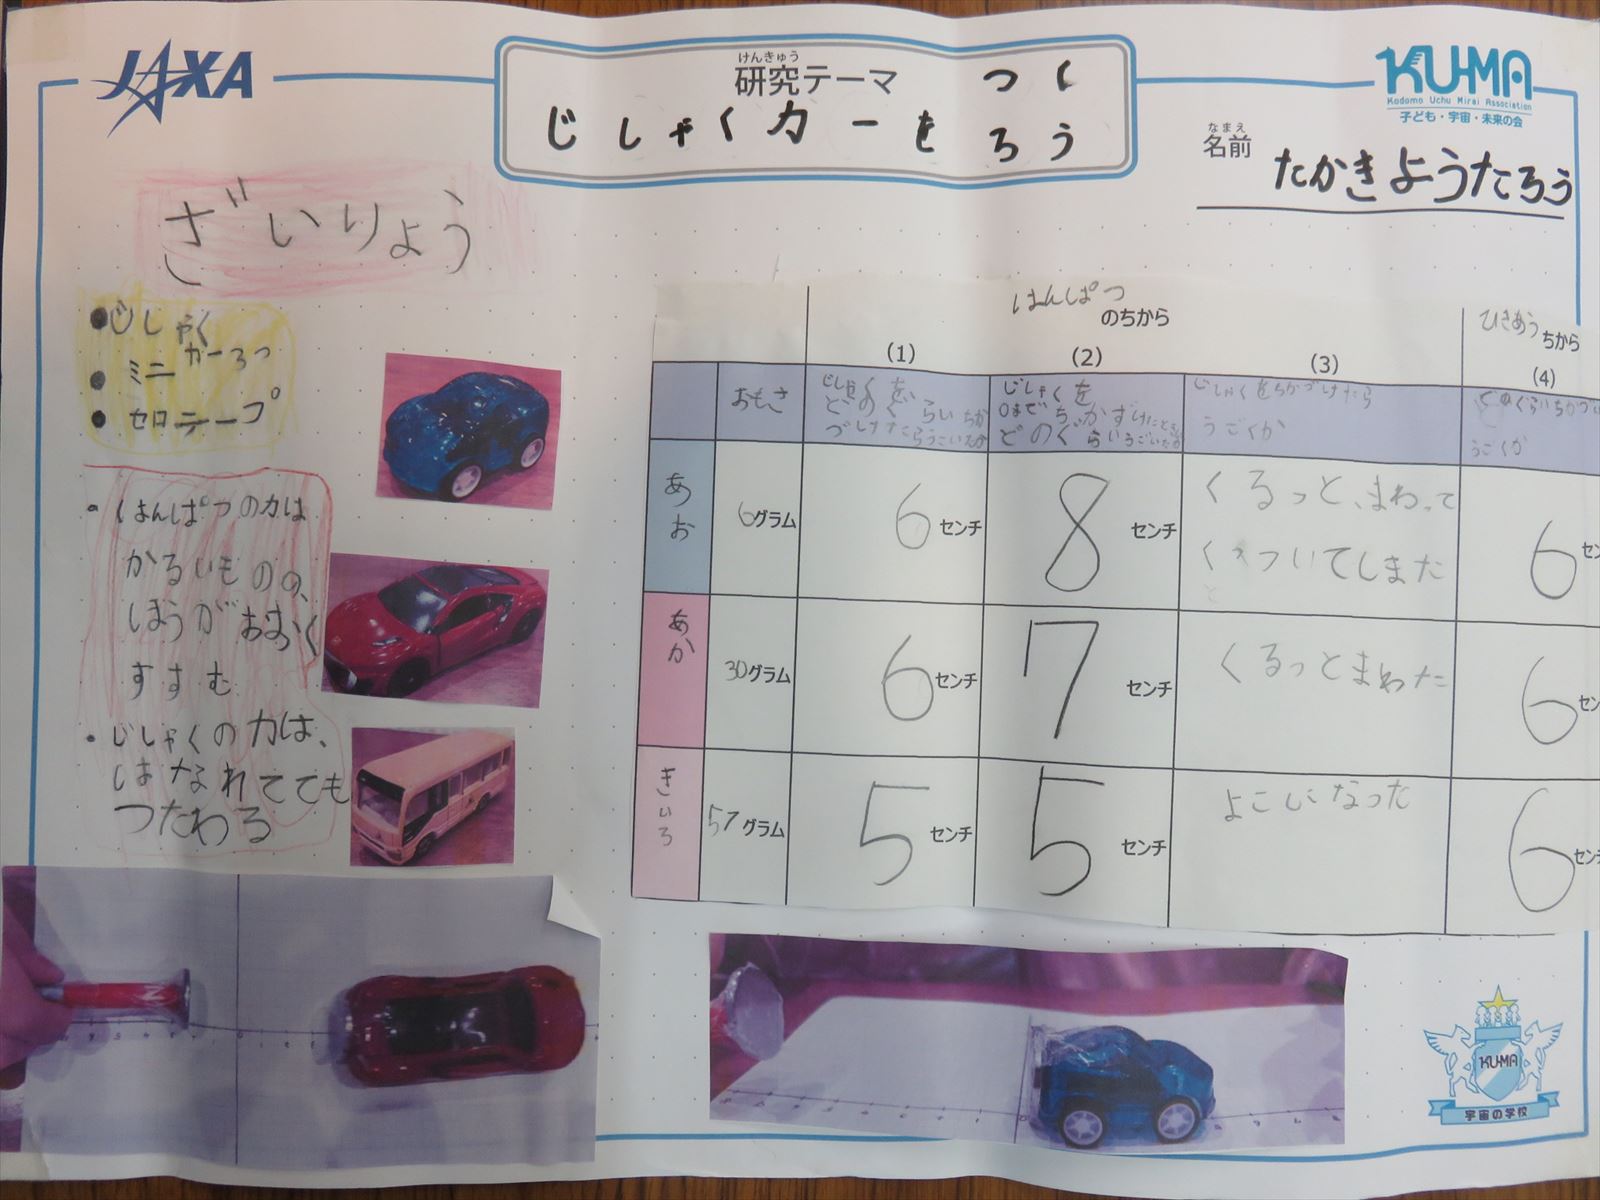 JAXA
けんきゅう
研究テーマ
つく
じしゃくカーを
ろう
KU-MA
Kodomo Uchu Mirai Association
子ども・宇宙・未来の会
なまえ
名前
たかきようたろう
ざいりょう
●じしゃく
● ミニカー3つ
● セロテープ
・はんぱつの力は
かるいものの、
ほうがおおく
すすむ
・じしゃくの力は、
はなれてても
つたわる
はんぱつ
のちから
ひきあう
ちから
(1)
(2)
(3)
(4)
おもさ
じしゃくを
どのぐらいちか
づけたらうごいたか
じしゃくを
0までちかずけたとき
どのぐらいうごいたか
じしゃくをちかづけたら
うごくか
どのぐらいちかづ
うごくか
あお
6グラム
6センチ
8センチ
くるっと、まわって
くっついてしまた
6セン
あか
30グラム
6センチ
7センチ
くるっとまわった
6セン
きいろ
57グラム
5センチ
5センチ
よこになった
6センチ
N
KU-MA
宇宙の学校